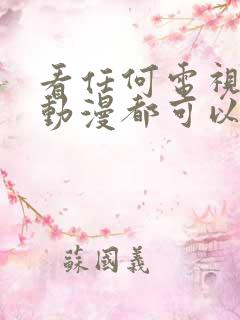 看任何電視
動漫都可以
蘇國義